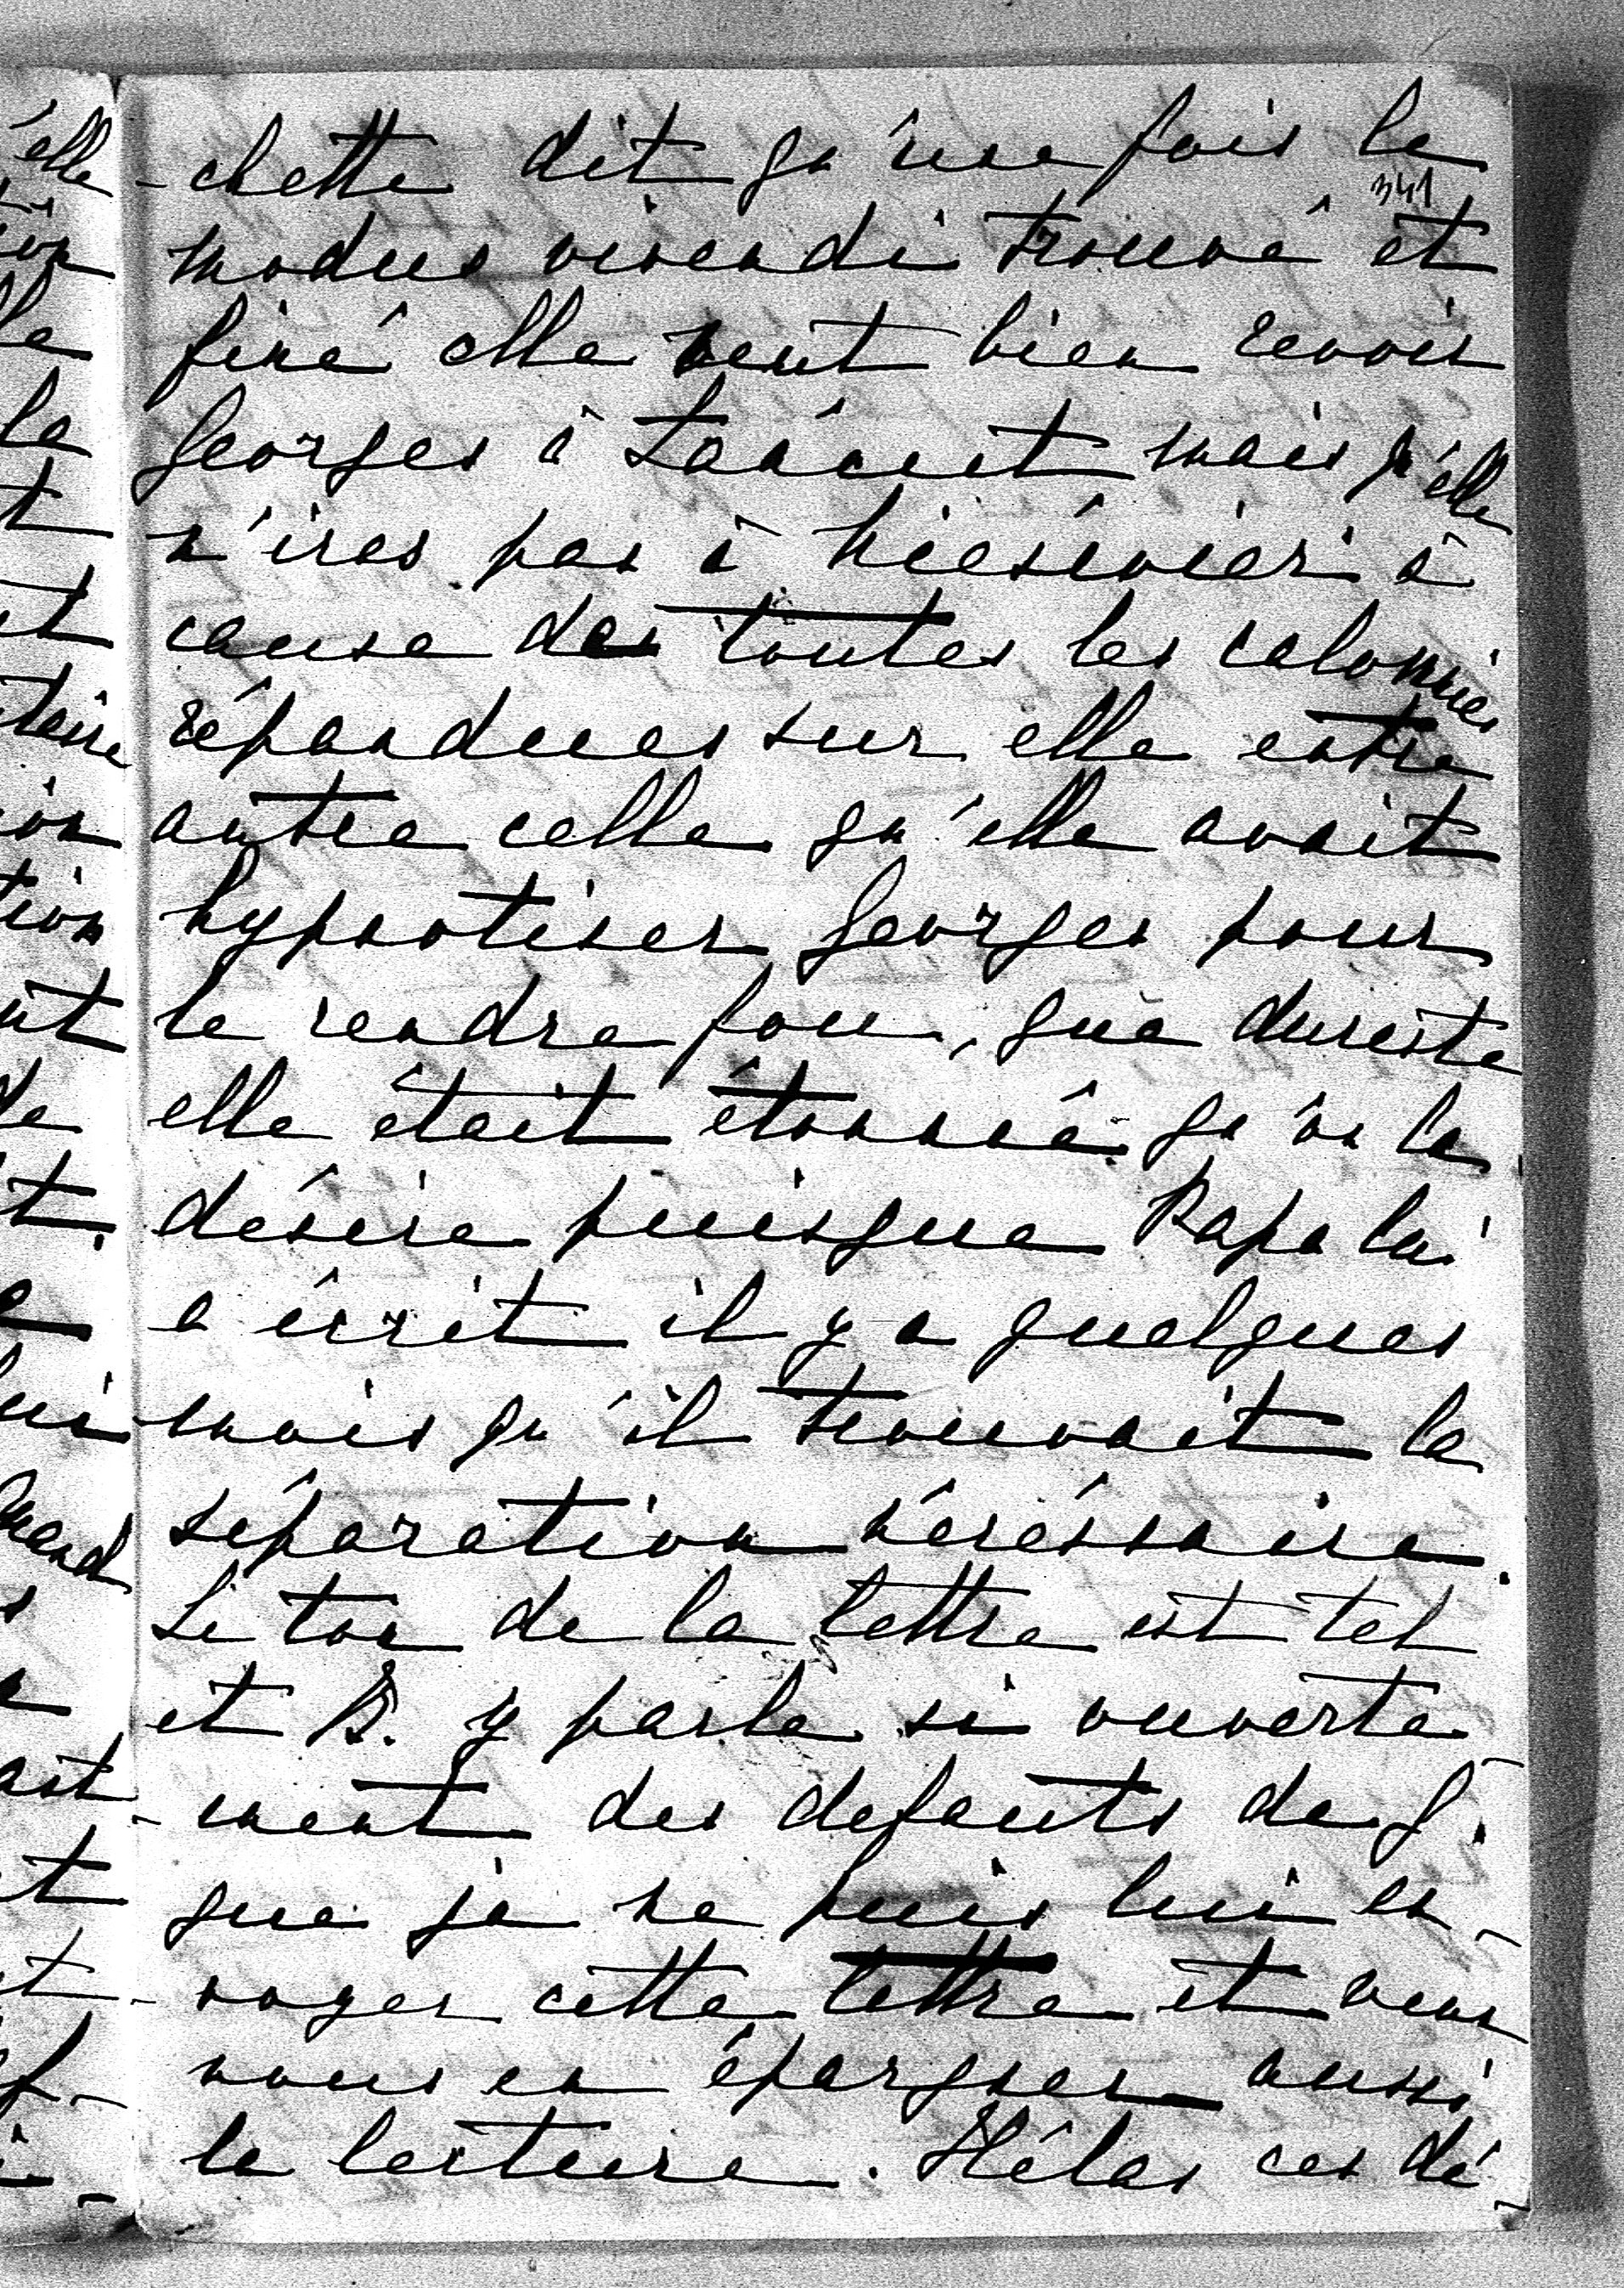 -chette dit qu'une fois le
341
modus vivendi trouvé et
fixé elle veut bien revoir
Georges à mais qu'elle
n'iras pas à à
cause de toutes les calomnies
répandues sur elle entre
autre celle qu'elle avait
hypnotiser Georges pour
le rendre fou, que dureste
elle était étonnée qu'on la
désire puisque Papa lui
a écrit il y a quelques
mois qu'il trouvait la
séparation nécéssaire.
Le ton de la lettre est tel
et B. y parle si ouverte-
-ment des defauts de G.
que je ne puis lui en-
-voyer cette lettre et veux
vous en épargner aussi
la lecture. Hélas ces dé-